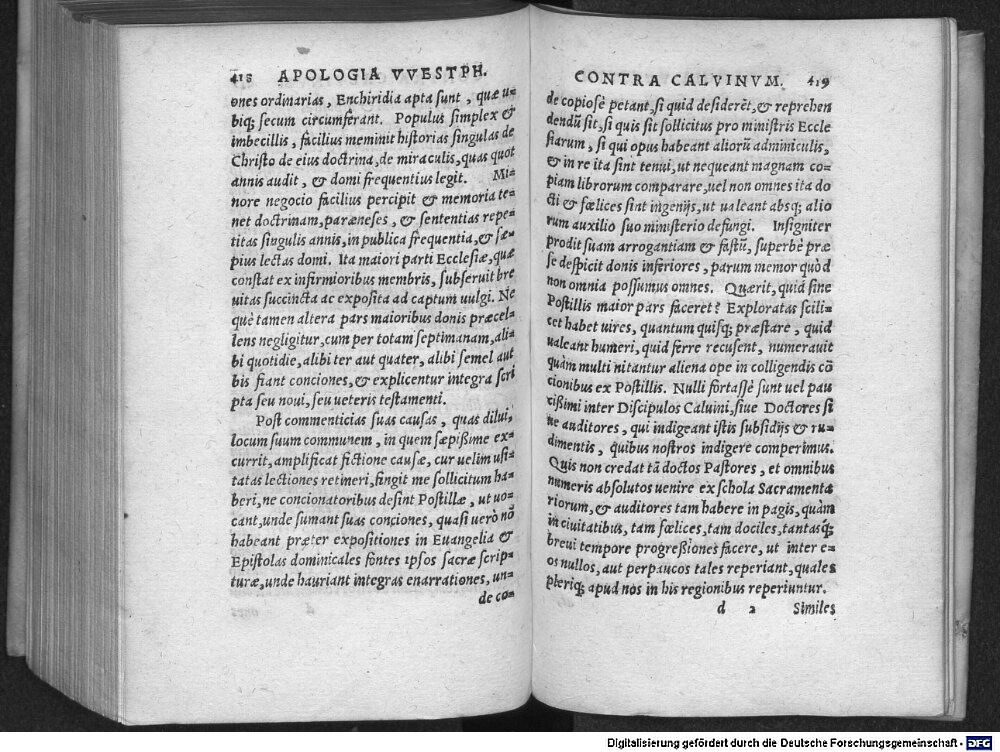 418 APOLOGIA VVESTPH.
ones ordinarias, Enchiridia apta sunt, quæ u-
biq; secum circumferant. Populus simplex &
imbecillis, facilius meminit historias singulas de
Christo de eius doctrina, de miraculis, quas quot
annis audit, & domi frequentius legit. Mi-
nore negocio facilius percipit & memoria te-
net doctrinam, paræneses, & sententias repe-
titas singulis annis, in publica frequentia, & sæ-
pius lectas domi. Ita maiori parti Ecclesiæ, quæ
constat ex infirmioribus membris, subseruit bre
uitas succincta ac exposita ad captum uulgi. Ne
que tamen altera pars maioribus donis præcel-
lens negligitur, cum per totam septimanam, ali-
bi quotidie, alibi ter aut quater, alibi semel aut
bis fiant conciones, & explicentur integra scri
pta seu noui, seu ueteris testamenti.
Post commenticias suas causas, quas dilui,
locum suum communem, in quem sæpißime ex-
currit, amplificat fictione causæ, cur uelim usi-
tatas lectiones retineri, fingit me sollicitum ha-
beri, ne concionatoribus desint Postillæ, ut uo-
cant, unde sumant suas conciones, quasi uerò nō
habeant præter expositiones in Euangelia &
Epistolas dominicales fontes ipsos sacræ scrip-
turæ, unde hauriant integras enarrationes, un-
de co-
CONTRA CALVINVM. 419
de copiosè petant, si quid desideret, & reprehen
dendū sit, si quis sit sollicitus pro ministris Eccle
siarum, si qui opus habeant aliorū adminiculis,
& in re ita sint tenui, ut nequeant magnam co-
piam librorum comparare, uel non omnes ita do
cti & fœlices sint ingenijs, ut ualeant absq; alio
rum auxilio suo ministerio defungi. Insigniter
prodit suam arrogantiam & fastū, superbè præ
se despicit donis inferiores, parum memor quòd
non omnia possumus omnes. Quærit, quid sine
Postillis maior pars faceret? Exploratas scili-
cet habet uires, quantum quisq; præstare, quid
ualeant humeri, quid ferre recusent, numerauit
quàm multi nitantur aliena ope in colligendis cō
cionibus ex Postillis. Nulli fortassè sunt uel pau
cißimi inter Discipulos Caluini, siue Doctores si
ne auditores, qui indigeant istis subsidijs & ru-
dimentis, quibus nostros indigere comperimus.
Quis non credat tā doctos Pastores, et omnibus
numeris absolutos uenire ex schola Sacramenta
riorum, & auditores tam habere in pagis, quàm
in ciuitatibus, tam fœlices, tam dociles, tantasq;
breui tempore progreßiones facere, ut inter e-
os nullos, aut perpaucos tales reperiant, quales
pleriq; apud nos in his regionibus reperiuntur.
d 2 Similes
Digitalisierung gefördert durch die Deutsche Forschungsgemeinschaft - DFG